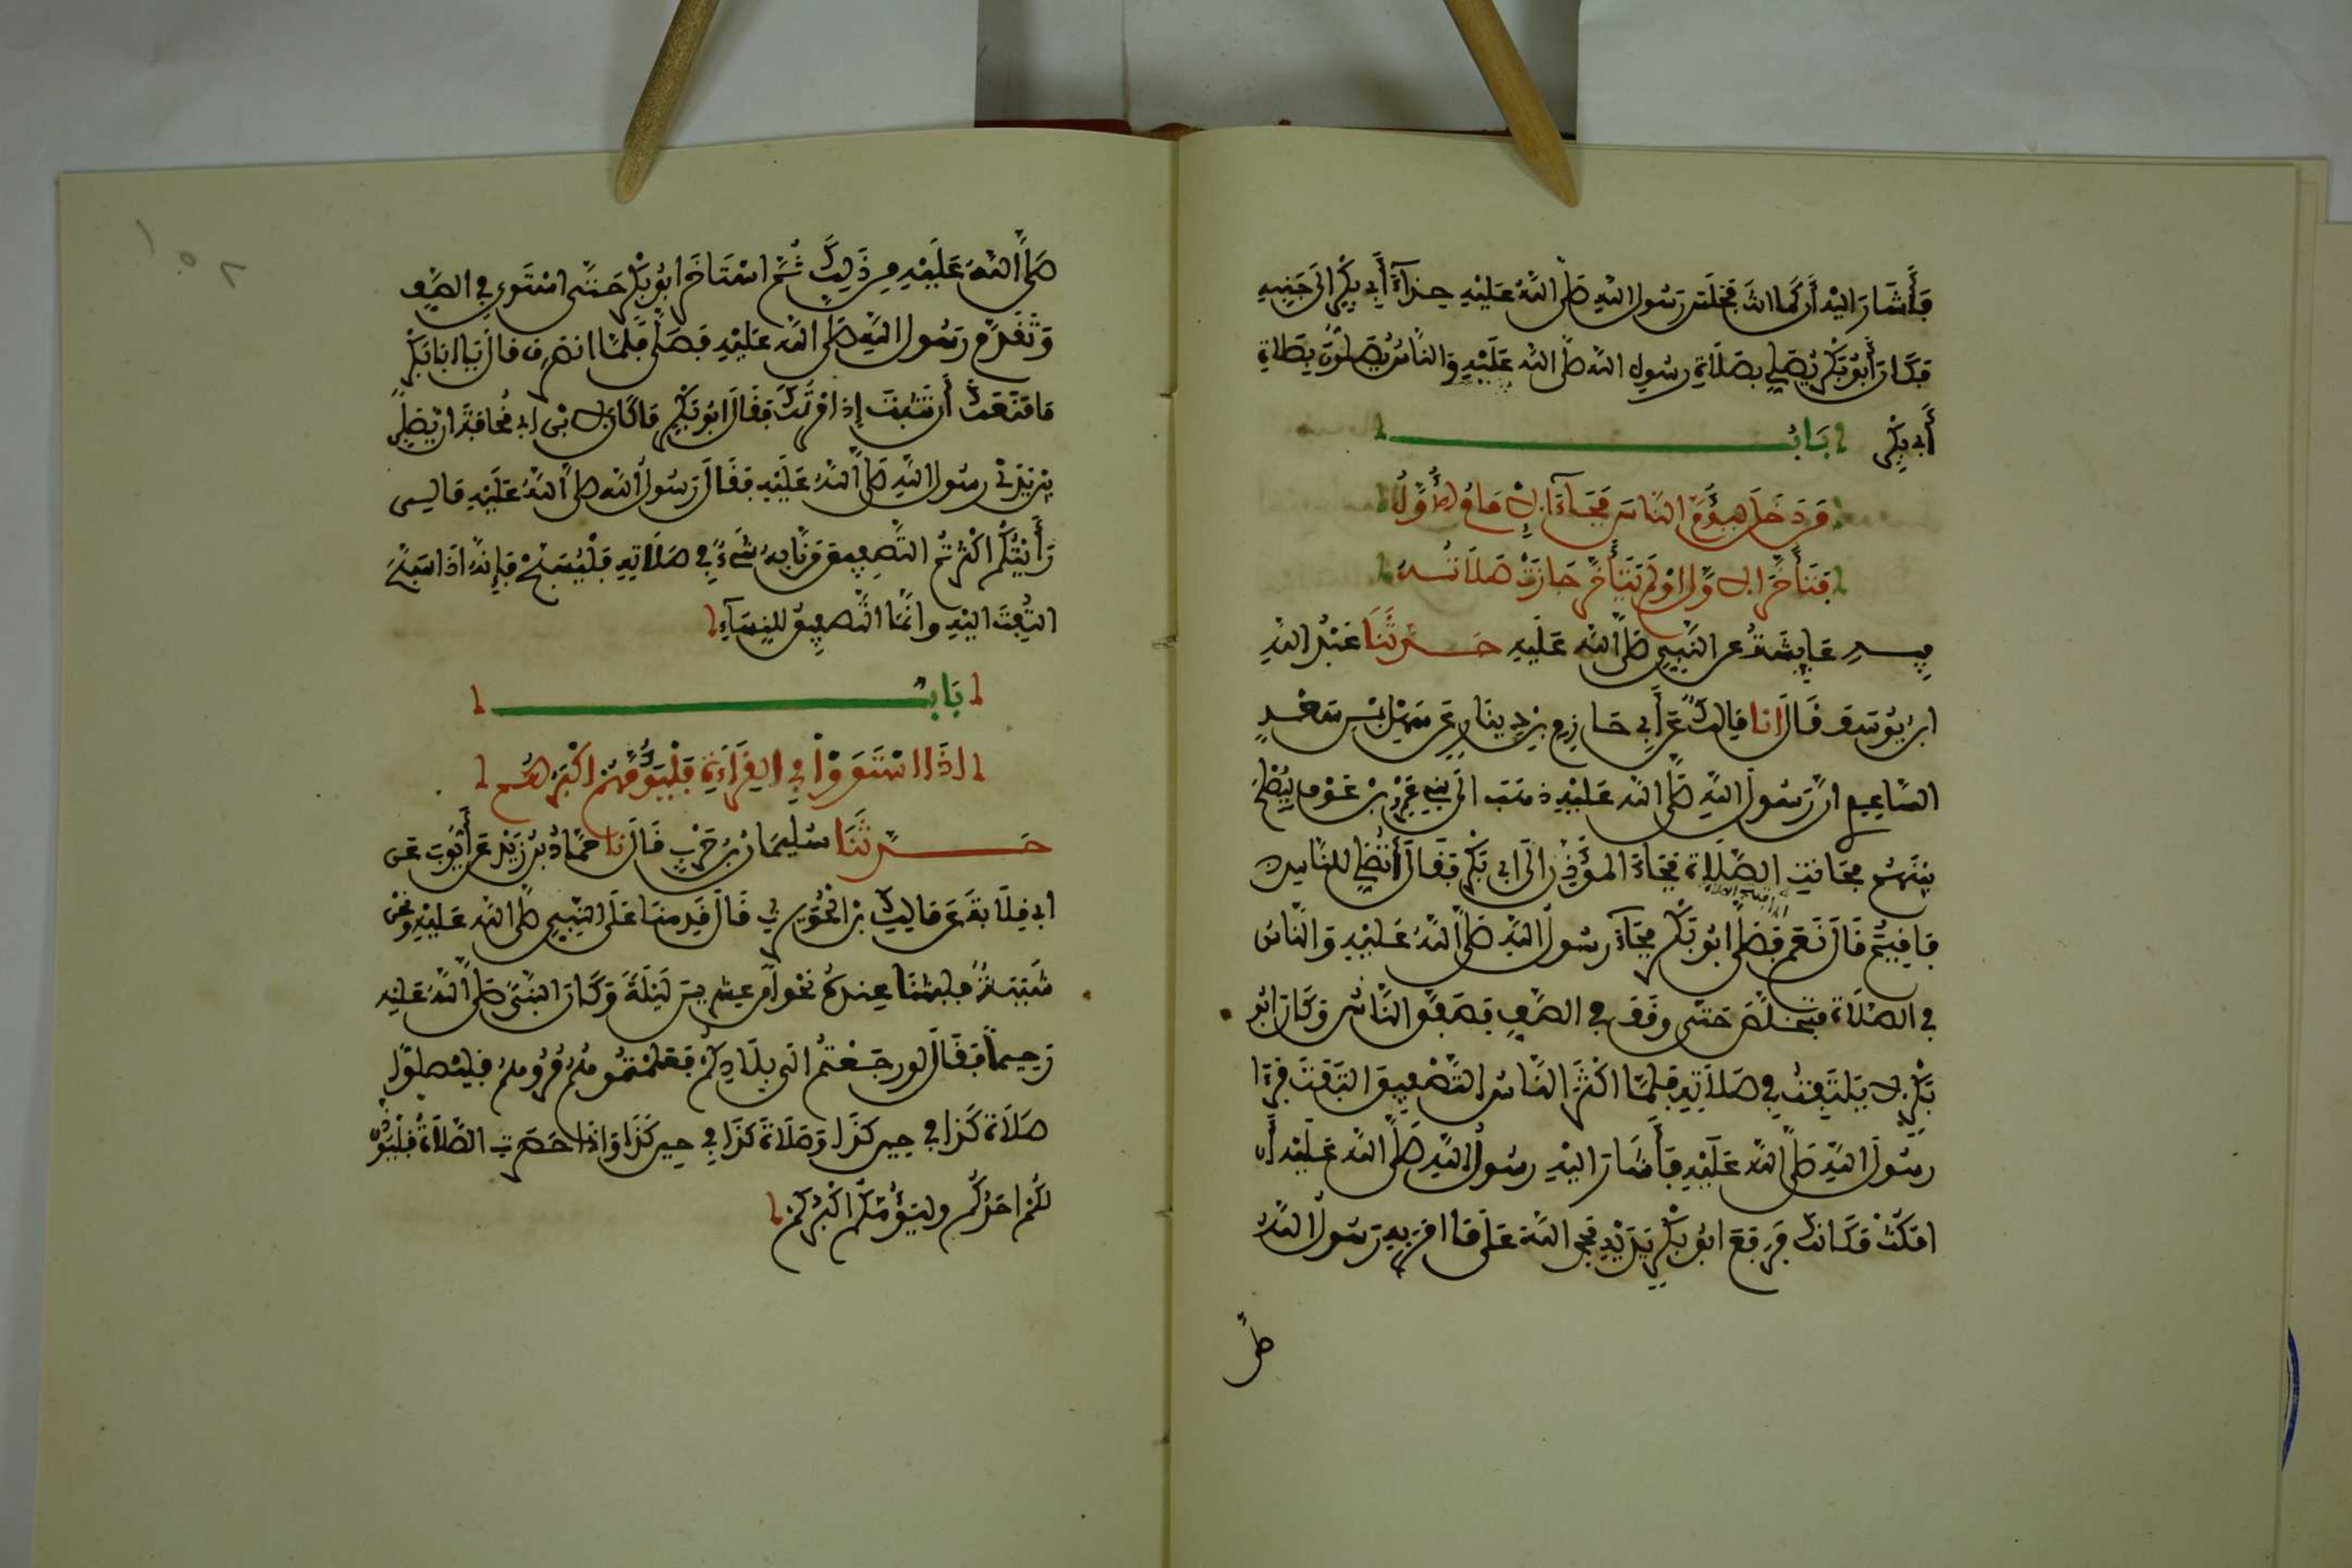 فَأَشَارَ إِلَيْهِ أَن كَمَا أَنتَ فَجَلَسَ رَسُولُ اللهِ صَلَّى اللهُ عَلَيْهِ حِذَاءَ أَبِي بَكْرٍ إِلَى جَنبِهِ
فَكَانَ أَبُو بَكْرٍ يُصَلِّي بِصَلَاةِ رَسُولِ اللهِ صَلَّى اللهُ عَلَيْهِ وَالنَّاسُ يُصَلُّونَ بِصَلَاةِ
أَبِي بَكْرٍ بَابُ
مَن دَخَلَ لِيَؤُمَّ النَّاسَ فَجَاءَ الْإِمَامُ الْأَوَّلُ
فَتَأَخَّرَ الْأَوَّلُ أَوْ لَمْ يَتَأَخَّرْ جَازَتْ صَلَاتُهُ
فِيهِ عَائِشَةُ عَنِ النَّبِيِّ صَلَّى اللهُ عَلَيْهِ حَدَّثَنَا عَبْدُ اللهِ
ابْنُ يُوسُفَ قَالَ أَنَا مَالِكٌ عَنْ أَبِي حَازِمِ بْنِ دِينَارٍ عَنْ سَهْلِ بْنِ سَعْدٍ
السَّاعِدِيِّ أَنَّ رَسُولَ اللهِ صَلَّى اللهُ عَلَيْهِ ذَهَبَ إِلَى بَنِي عَمْرِو بْنِ عَوْفٍ لِيُصْلِحَ
بَيْنَهُمْ فَحَانَتِ الصَّلَاةُ فَجَاءَ الْمُؤَذِّنُ إِلَى أَبِي بَكْرٍ فَقَالَ أَتُصَلِّي لِلنَّاسِ
فَأُقِيمَ قَالَ نَعَمْ فَصَلَّى أَبُو بَكْرٍ فَجَاءَ رَسُولُ اللهِ صَلَّى اللهُ عَلَيْهِ وَالنَّاسُ
فِي الصَّلَاةِ فَتَخَلَّصَ حَتَّى وَقَفَ فِي الصَّفِّ فَصَفَّقَ النَّاسُ وَكَانَ أَبُو
بَكْرٍ لَا يَلْتَفِتُ فِي صَلَاتِهِ فَلَمَّا أَكْثَرَ النَّاسُ التَّصْفِيقَ الْتَفَتَ فَرَأَى
رَسُولَ اللهِ صَلَّى اللهُ عَلَيْهِ فَأَشَارَ إِلَيْهِ رَسُولُ اللهِ صَلَّى اللهُ عَلَيْهِ أَنِ
امْكُثْ مَكَانَكَ فَرَفَعَ أَبُو بَكْرٍ يَدَيْهِ فَحَمِدَ اللهَ عَلَى مَا أَمَرَ بِهِ رَسُولُ اللهِ
صَلَّى
صَلَّى اللهُ عَلَيْهِ مِن ذَلِكَ ثُمَّ اسْتَأْخَرَ أَبُو بَكْرٍ حَتَّى اسْتَوَى فِي الصَّفِّ
وَتَقَدَّمَ رَسُولُ اللهِ صَلَّى اللهُ عَلَيْهِ فَصَلَّى فَلَمَّا انصَرَفَ قَالَ يَا أَبَا بَكْرٍ
مَا مَنَعَكَ أَن تَثْبُتَ إِذْ أَمَرْتُكَ فَقَالَ أَبُو بَكْرٍ مَا كَانَ لِابْنِ أَبِي قُحَافَةَ أَن يُصَلِّيَ
بَيْنَ يَدَيْ رَسُولِ اللهِ صَلَّى اللهُ عَلَيْهِ فَقَالَ رَسُولُ اللهِ صَلَّى اللهُ عَلَيْهِ مَا لِي
رَأَيْتُكُمْ أَكْثَرْتُمُ التَّصْفِيقَ مَن نَابَهُ شَيْءٌ فِي صَلَاتِهِ فَلْيُسَبِّحْ فَإِنَّهُ إِذَا سَبَّحَ
الْتُفِتَ إِلَيْهِ وَإِنَّمَا التَّصْفِيقُ لِلنِّسَاءِ
بَابُ
إِذَا اسْتَوَوْا فِي الْقِرَاءَةِ فَلْيَؤُمَّهُمْ أَكْبَرُهُمْ
حَدَّثَنَا سُلَيْمَانُ بْنُ حَرْبٍ قَالَ نَا حَمَّادُ بْنُ زَيْدٍ عَنْ أَيُّوبَ عَنْ
أَبِي قِلَابَةَ عَنْ مَالِكِ بْنِ الْحُوَيْرِثِ قَالَ قَدِمْنَا عَلَى النَّبِيِّ صَلَّى اللهُ عَلَيْهِ وَنَحْنُ
شَبَبَةٌ فَلَبِثْنَا عِندَهُ نَحْوًا مِّنْ عِشْرِينَ لَيْلَةً وَكَانَ النَّبِيُّ صَلَّى اللهُ عَلَيْهِ
رَحِيمًا فَقَالَ لَوْ رَجَعْتُمْ إِلَى بِلَادِكُمْ فَعَلَّمْتُمُوهُمْ مُرُوهُمْ فَلْيُصَلُّوا
صَلَاةَ كَذَا فِي حِينِ كَذَا وَصَلَاةَ كَذَا فِي حِينِ كَذَا وَإِذَا حَضَرَتِ الصَّلَاةُ فَلْيُؤَذِّنْ
لَكُمْ أَحَدُكُمْ وَلْيَؤُمَّكُمْ أَكْبَرُكُمْ